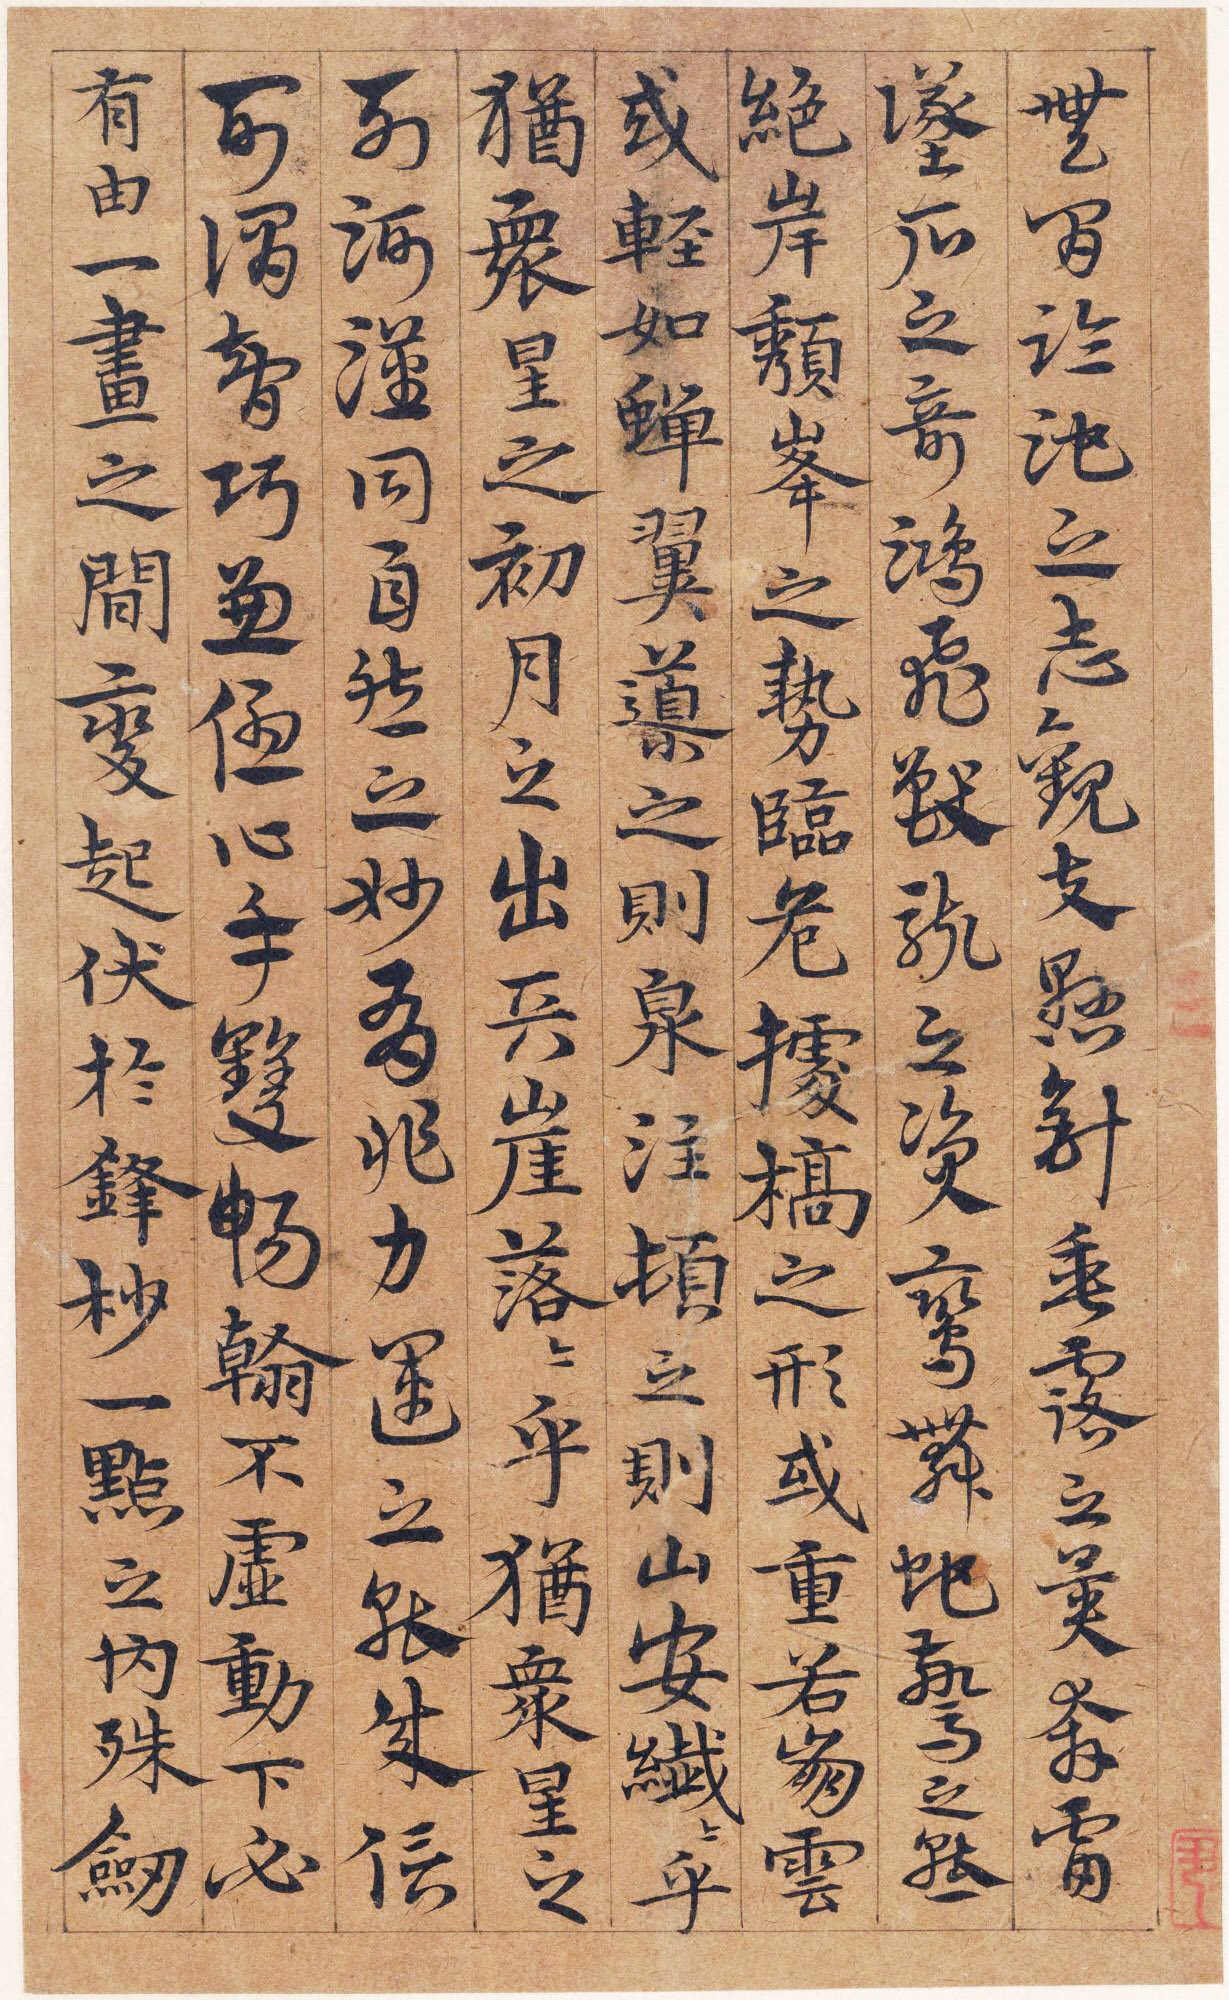 無間臨池之志觀夫懸針垂露之異奔雷
墜石之奇鴻飛獸駭之資鸞舞虵驚之態
絕岸頹峯之勢臨危據槁之形或重若崩雲
或輕如蟬翼導之則泉注頓之則山安纖〻乎
猶衆星之初月之出天崖落〻乎猶衆星之
列河漢同自然之妙有非力運之能成信
可謂智巧兼優心手雙暢翰不虛動下必
有由一畫之間變起伏於鋒杪一點之內殊衄